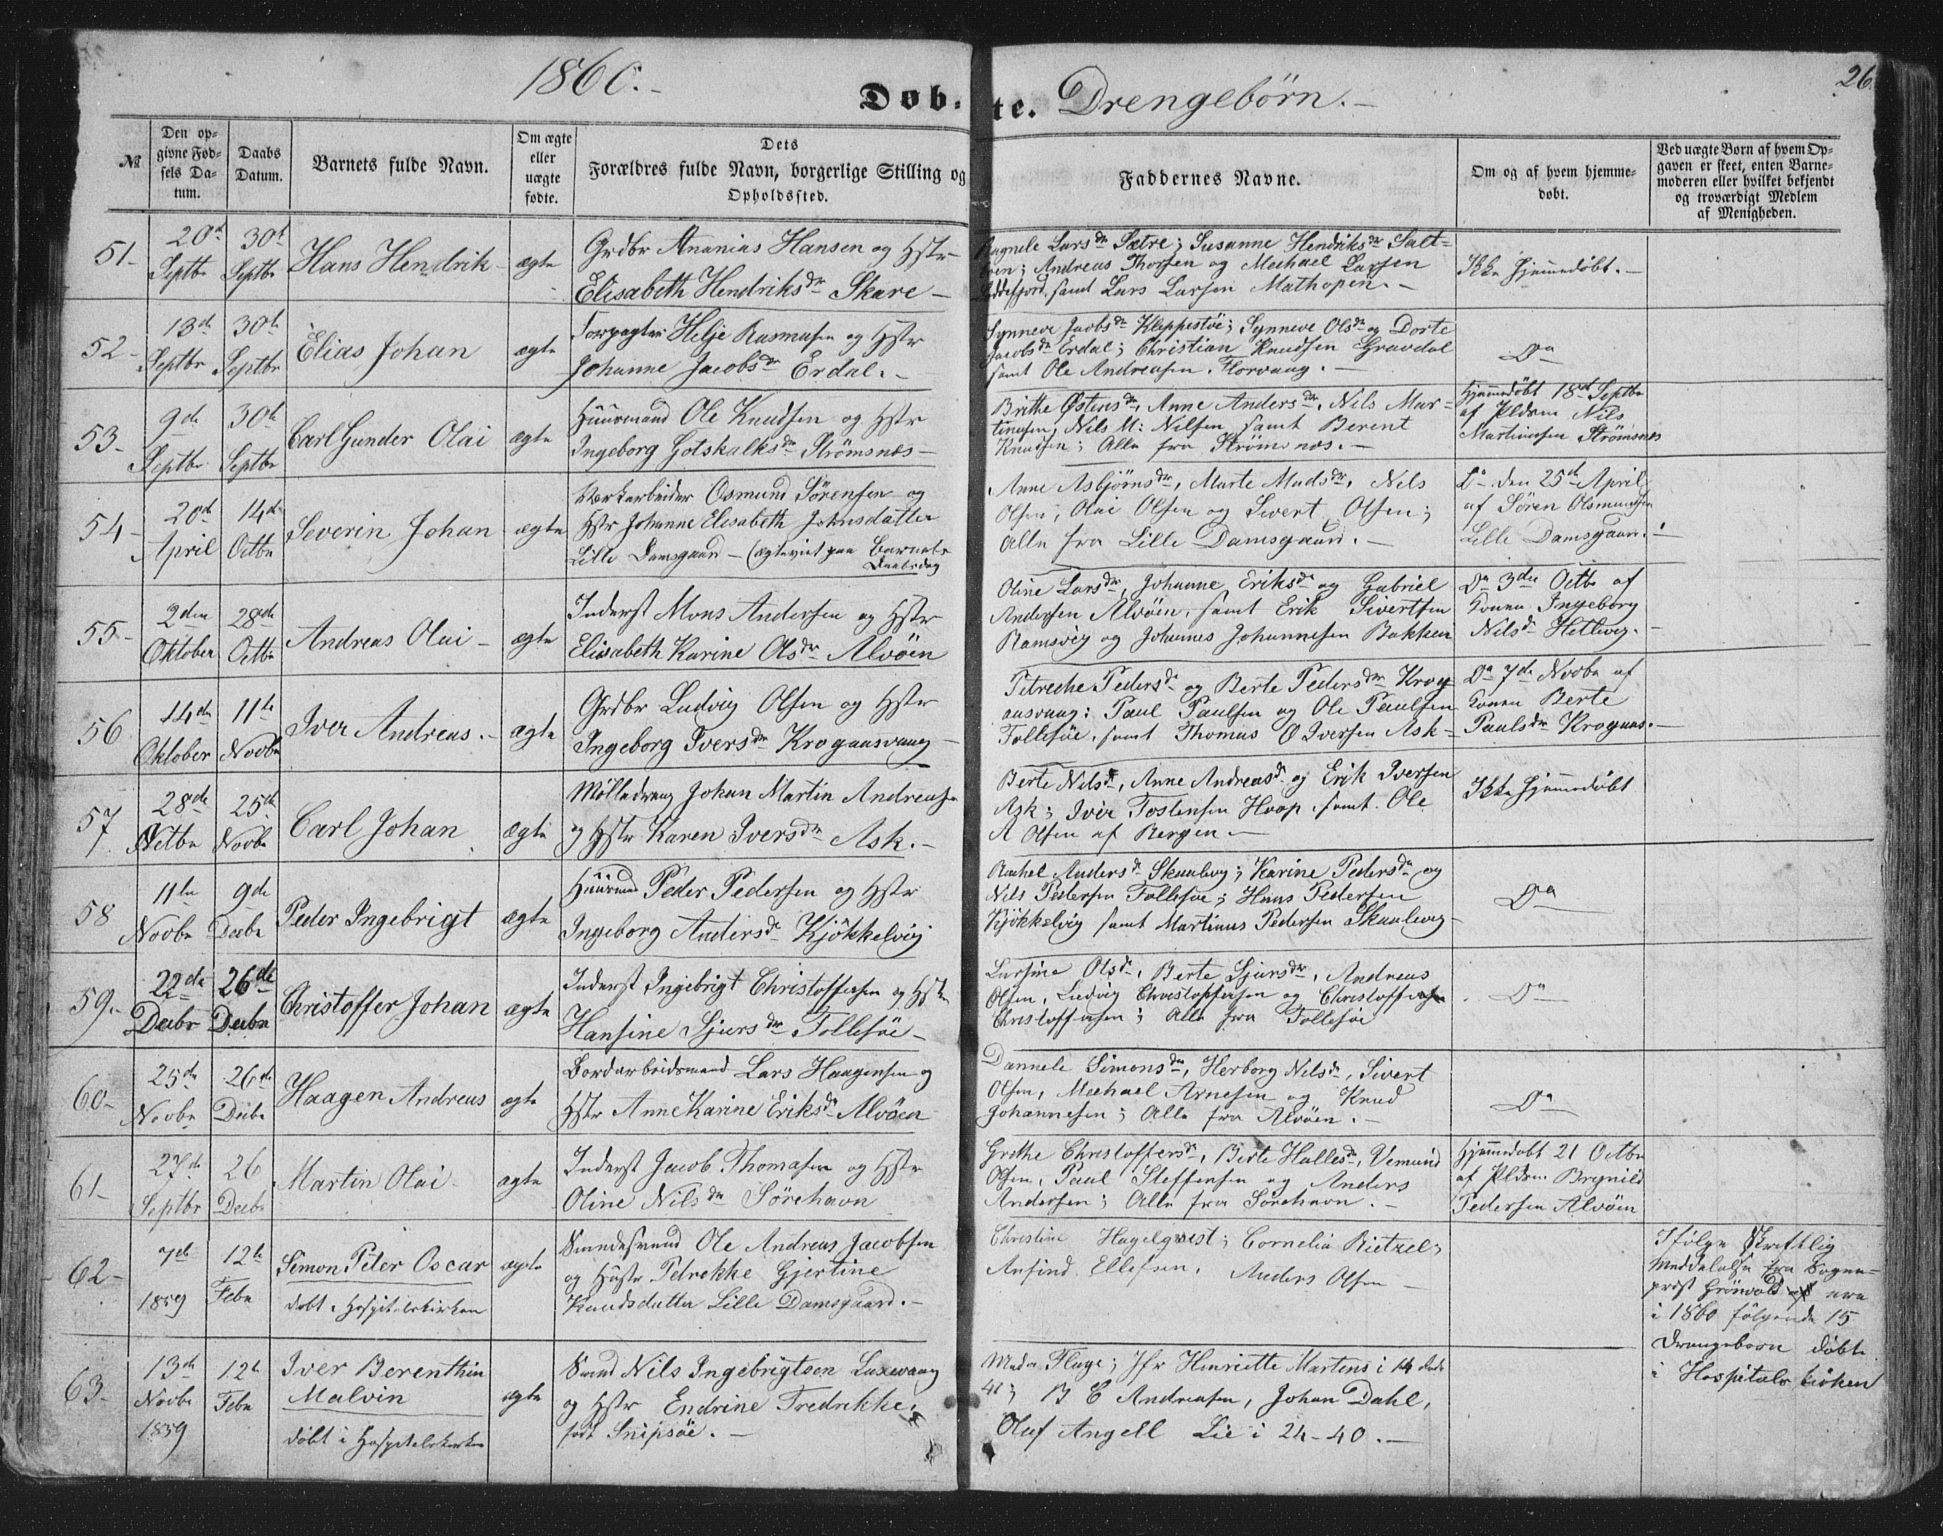 1860.-
Døb-te. Drengebørn.-
26
№
Den op-
givne Fød-
sels Da-
tum.
Daabs
Datum.
Barnets fulde Navn.
Om ægte
eller
uægte
fødte.
Dets
Forældres fulde Navn, borgerlige Stilling og
Opholdssted.
Faddernes Navne.
Om og af hvem hjemme-
døbt.
Ved uægte Børn af hvem Op-
gaven er skeet, enten Barne-
moderen eller hvilket bekjendt
og troværdigt Medlem
af Menigheden.
51-
20de
Septbr
30te
Septbr
Hans Hendrik-
ægte
Grdbr Ananias Hansen og Hstr
Elisabeth Hendriksdr Skare-
Larsdr Sætre; Susanne Hendriksdr Salt-
Andreas Thorsen og Mechael Larsen
samt Lars Larsen Mathopen.-
Ikke Hjemmedøbt.-
52-
13de
Septbr
30te
Septbr
Elias Johan
ægte
Forpagter Helje Rasmusen og Hstr
Johanne Jacobsdr Erdal.-
Synneve Jacobsdr Kleppestøe; Synneve Olsdr og Dorte
Jacobsdr Erdal; Christian Knudsen Gravdal
samt Ole Andreasen Florvaag.-
Do
53-
9de
Septbr
30te
Septbr
Carl Gunder Olai
ægte
Huusmand Ole Knudsen og Hstr
Ingeborg Gotskalksdr Strømsnæs-
Brithe Østensdr, Anne Andersdr, Nils Mar-
tinusen, Nils M: Nilsen samt Berent
Knudsen; Alle fra Strømsnæs.-
Hjemmedøbt 18de Septbr
af Pldrm Nils
Martinusen Strømsnæs
54-
20de
April
14de
Octbr
Severin Johan
ægte
Værkarbeider Osmund Sørensen og
Hstr Johanne Elisabeth Johnsdatter
Lille Damsgaard- (ægteviet paa Barnets
Daabsdag
Anne Asbjørnsdr, Marte Madsdr, Nils
Olsen, Olai Olsen og Sivert Olsen;
Alle fra Lille Damsgaard.-
Do den 25de April
af Søren Olsmundsen
Lille Damsgaard.-
55-
2den
Oktober
28de
Octbr
Andreas Olai-
ægte
Inderst Mons Andersen og Hstr
Elisabeth Karine Olsdr Alvøen
Oline Larsdr, Johanne Eriksdr og Gabriel
Andersen Alvøen, samt Erik Sivertsen
Ramsvig og Johannes Johannesen Bakken
Do 3die Octbr af
Konen Ingeborg
Nilsdr Hetlevig.-
56
14de
Oktober
11te
Novbr
Iver Andreas.-
ægte
Grdbr Ludvig Olsen og Hstr
Ingeborg Iversdr Krogaasvaag-
Petreche Pedersdr og Berte Pedersdr Krog-
aasvaag; Paul Paulsen og Ole Paulsen
Follesøe, samt Thomas O Iversen Ask-
Do 7de Novbr af
Konen Berte
Paulsdr Krogaas.-
57
28de
Octbr
25de
Novbr
Carl Johan
ægte
Mølledreng Johan Martin Andreasen
og Hstr Karen Iversdr Ask.-
Berte Nilsdr, Anne Andreasdr og Erik Iversen
Ask; Iver Tostensen Hoop, samt Ole
A Olsen af Bergen.-
Ikke Hjemmedøbt
58
11te
Novbr
9de
Decbr
Peder Ingebrigt
ægte
Huusmd Peder Pedersen og Hstr
Ingeborg Andersdr Kjøkkelvig
Rachel Andersdr Skaalevig; Karine Pedersdr og
Nils Pedersen Follesøe; Hans Pedersen
Kjøkkelvig samt Martinus Pedersen Skaalevig-
Do
59.-
22de
Decbr
26de
Decbr
Christoffer Johan
ægte
Inderst Ingebrigt Christoffersen og Hstr
Hansine Sjursdr Follesøe-
Larsine Olsdr, Berte Sjursdr, Andreas
Olsen, Ludvig Christoffersen og Christoffer
Christoffersen; Alle fra Follesøe
Do
60-
25de
Novbr
26de
Decbr
Haagen Andreas
ægte
Bordarbeidsmand Lars Haagensen og
Hstr Anne Karine Eriksdr Alvøen
Dannele Simonsdr, Herborg Nilsdr, Sivert
Olsen, Mechael Arnesen og Knud
Johannesen; Alle fra Alvøen.-
Do
61-
27de
Septbr
26
Decbr
Martin Olai-
ægte
Inderst Jacob Thomasen og Hstr
Oline Nilsdr Sørehavn
Grethe Christoffersdr, Berte Hallesdr, Vemund
Olsen, Paul Steffensen og Anders
Andersen; Alle fra Sørehavn.-
Hjemmedøbt 21 Octbr
af Pldrm Brynild
Pedersen Alvøen
62-
7de
1859
12te
Febr
Simon Peter Oscar
døbt i Hospitalskirken
ægte
Smedesvend Ole Andreas Jacobsen
og Hustr Petrekke Gjertine
Knudsdatter Lille Damsgaard.-
Christine Hagelqvist; Cornelia Bietzel;
Anfind Ellefsen, Anders Olsen-
Ifølge Skriftlig
Meddelelse fra Sogne-
præst Grönvold ere
i 1860 følgende 15
Drengebørn døbte
i Hospitalskirken
63-
13de
Novbr
1859
12te
Febr
Iver Berenthin
Malvin
døbt i Hospitalskirken
ægte
Smed Nils Ingebrigtsen Laxevaag
og Hstr Endrine Fredrikke,
født Snipsøe.-
Mada Flage; Jfr Henriette Martens i 14
B C Andreasen, Johan Dahl,
Oluf Angell Lie i 24-40.-